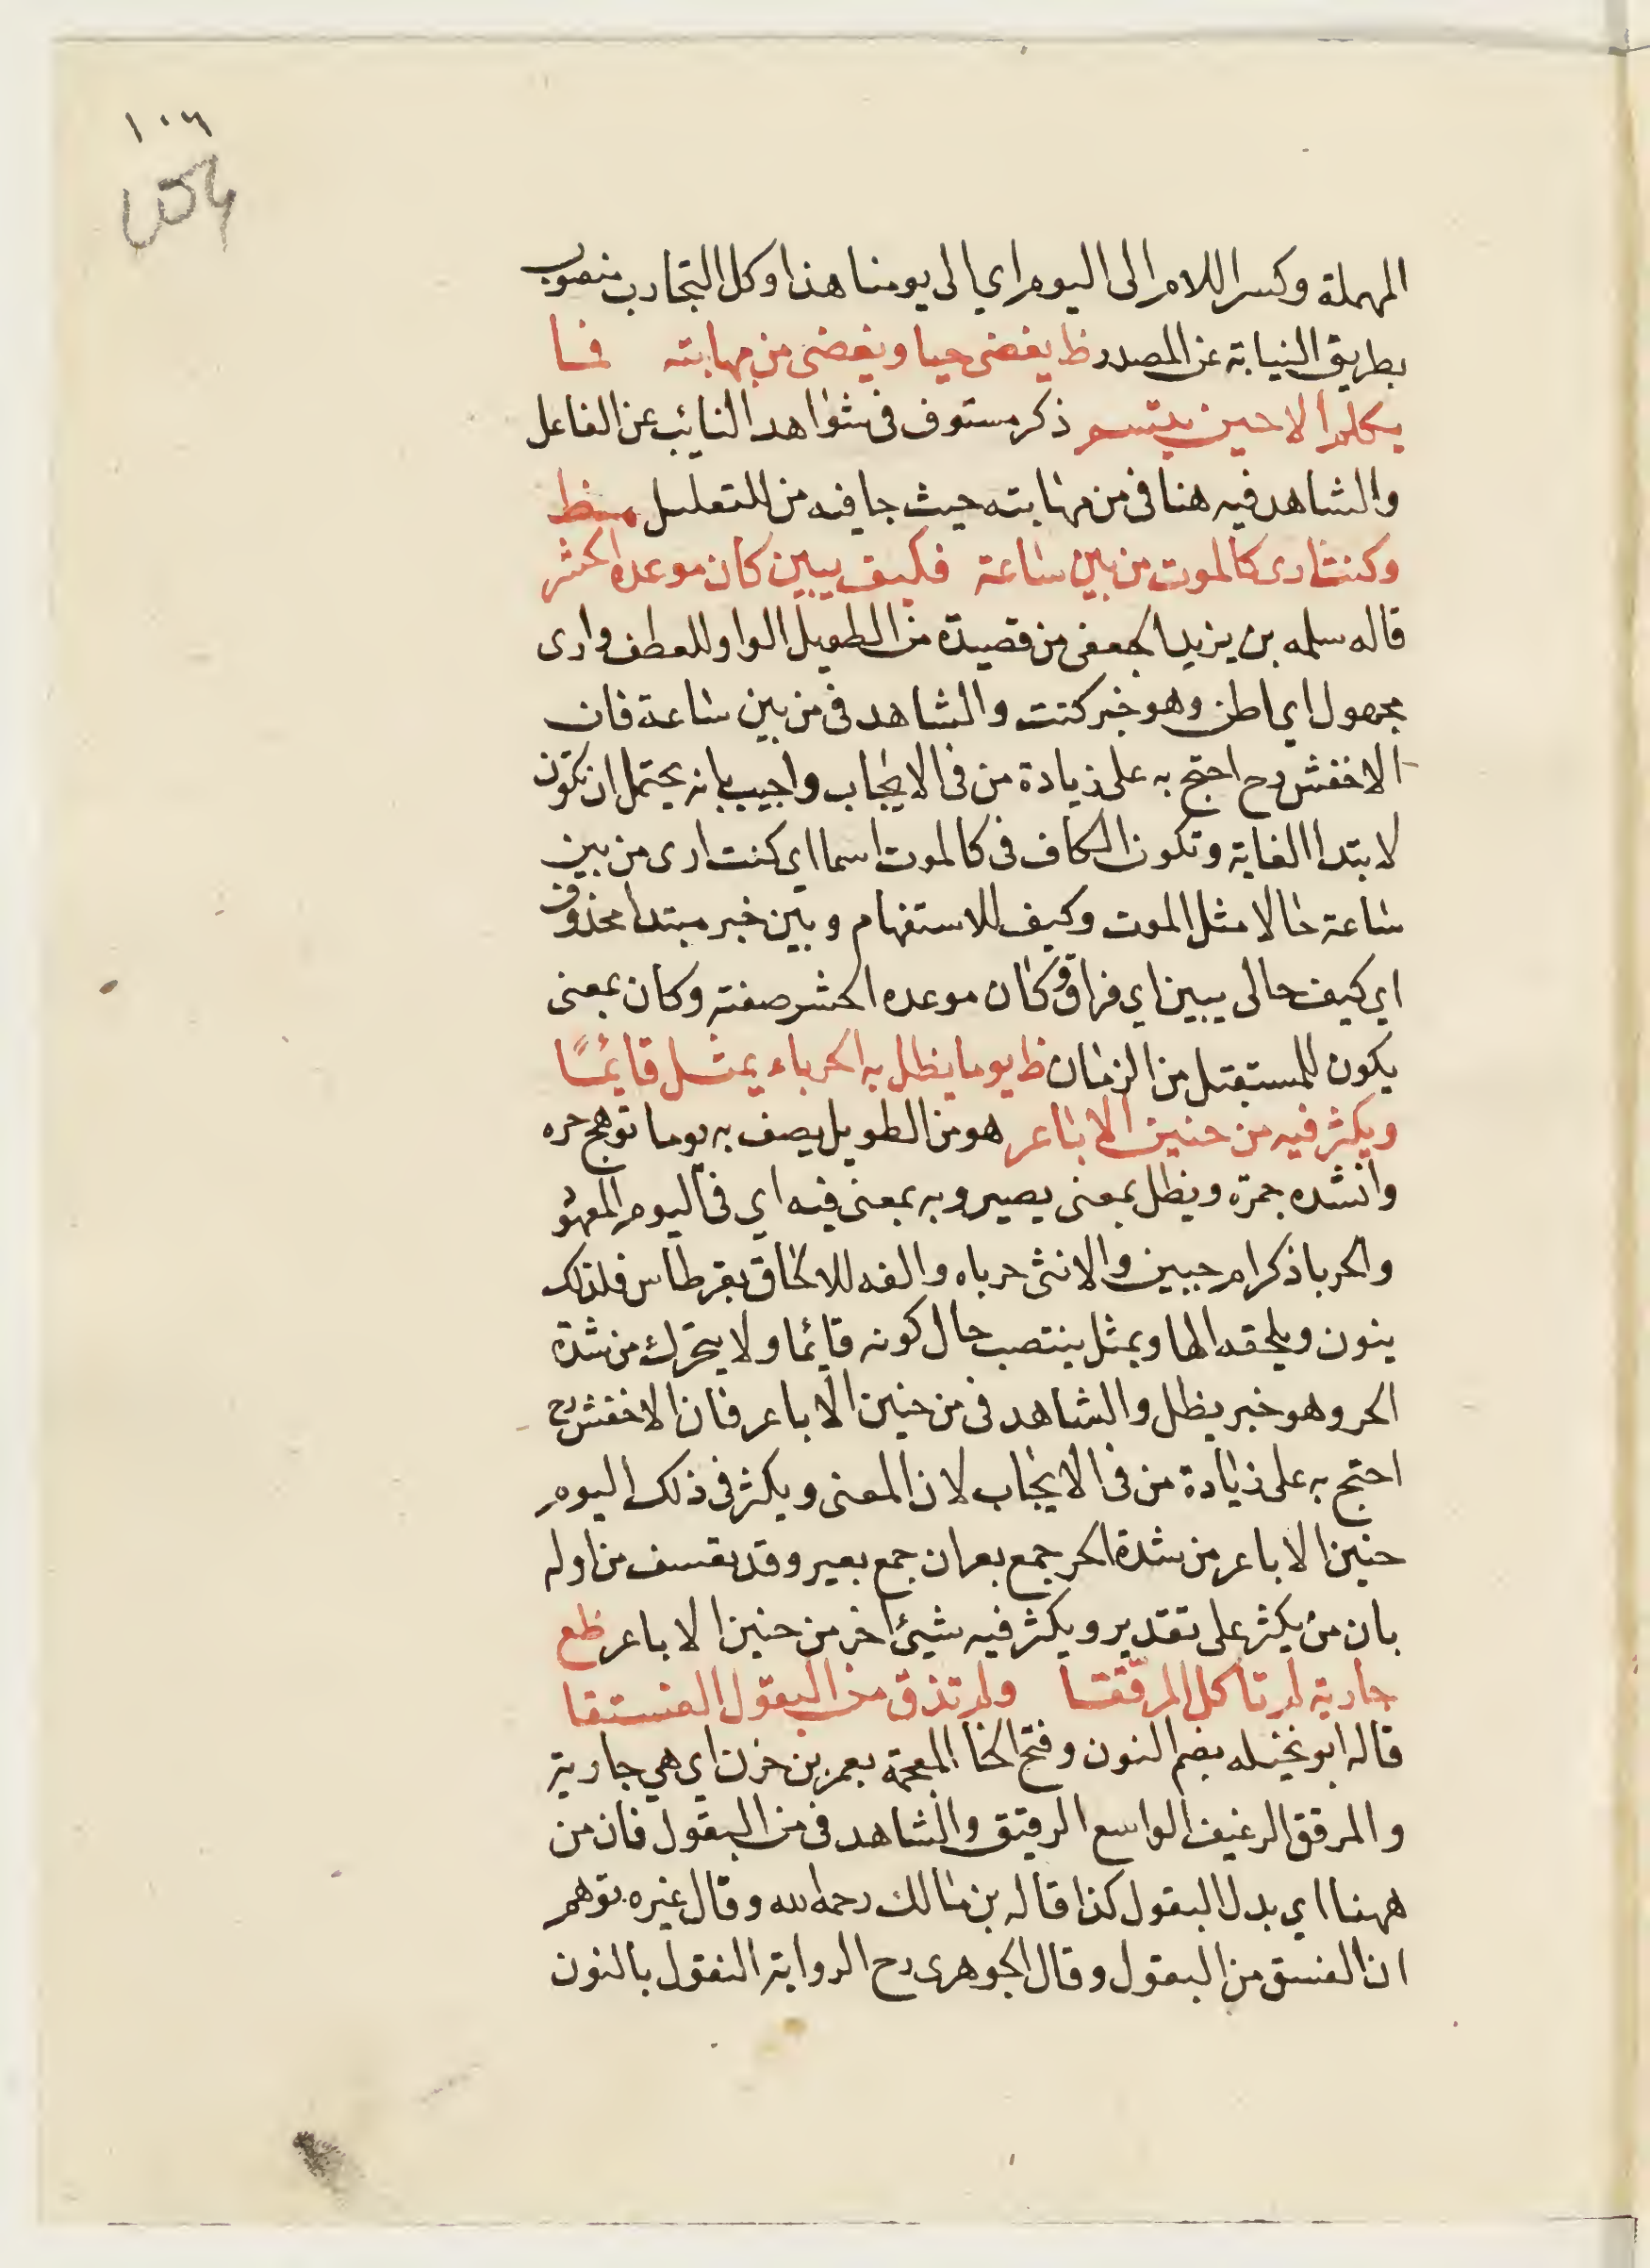 ١٠٦
المهملة وكسر اللام الى اليوم اي الى يومنا هذا وكل التجارب منصوب
بطريق النيابة عن المصدر ظ يغضى حيا ويغضى من مهابته فما
يكلم الا حين يبتسم ذكر مستوف فى شواهد النائب عن الفاعل
والشاهد فيه هنا فى من مهابته حيث جا فيه من للتعليل
وكنت ارى كالموت من بين ساعة فكيف ببين كان موعده الحشر
قاله سلمه بن يزيد الجعفى من قصيدة من الطويل الواو للعطف وارى
مجهول اي اظن وهو خبر كنت والشاهد فى من بين ساعة فان
الاخفش رح احتج به على زيادة من فى الايجاب واجيب بانه يحتمل ان تكون
لابتدا الغاية وتكون الكاف فى كالموت اسما اي كنت ارى من بين
ساعة حالا مثل الموت وكيف للاستفهام وبين خبر مبتدا محذوف
اي كيف حالى ببين اي فراق وكان موعده الحشر صفته وكان بمعنى
يكون للمستقبل من الزمان ظ يوما يظل به الحرباء يمثل قائمًا
ويكثر فيه من حنين الاباعر هو من الطويل يصف به يوما توهج حره
وانشده جمرة ويظل بمعنى يصير وبه بمعنى فيه اي فى اليوم المعهود
والحربا ذكر ام حبين والانثى حرباه والفه للالحاق بقرطاس فلذلك
ينون ويلحقه الها ويمثل ينتصب حال كونه قائما ولا يتحرك من شدة
الحر وهو خبر يظل والشاهد فى من حنين الاباعر فان الاخفش رح
احتج به على زيادة من فى الايجاب لان المعنى ويكثر فى ذلك اليوم
حنين الاباعر من شدة الحر جمع بعران جمع بعير وقد تعسف من اوله
بان من يكثر على تقدير ويكثر فيه شيئ اخر من حنين الاباعر ظع
جارية لم تاكل المرققا ولم تذق من البقول الفستقا
قاله ابو نخيله بضم النون وفتح الخا المعجمة يعمر بن حزن اي هي جارية
والمرقق الرغيف الواسع الرقيق والشاهد فى من البقول فان من
ههنا اي بدل البقول كذا قاله بن مالك رحمه الله وقال غيره توهم
ان الفستق من البقول وقال الجوهرى رح الرواية النقول بالنون